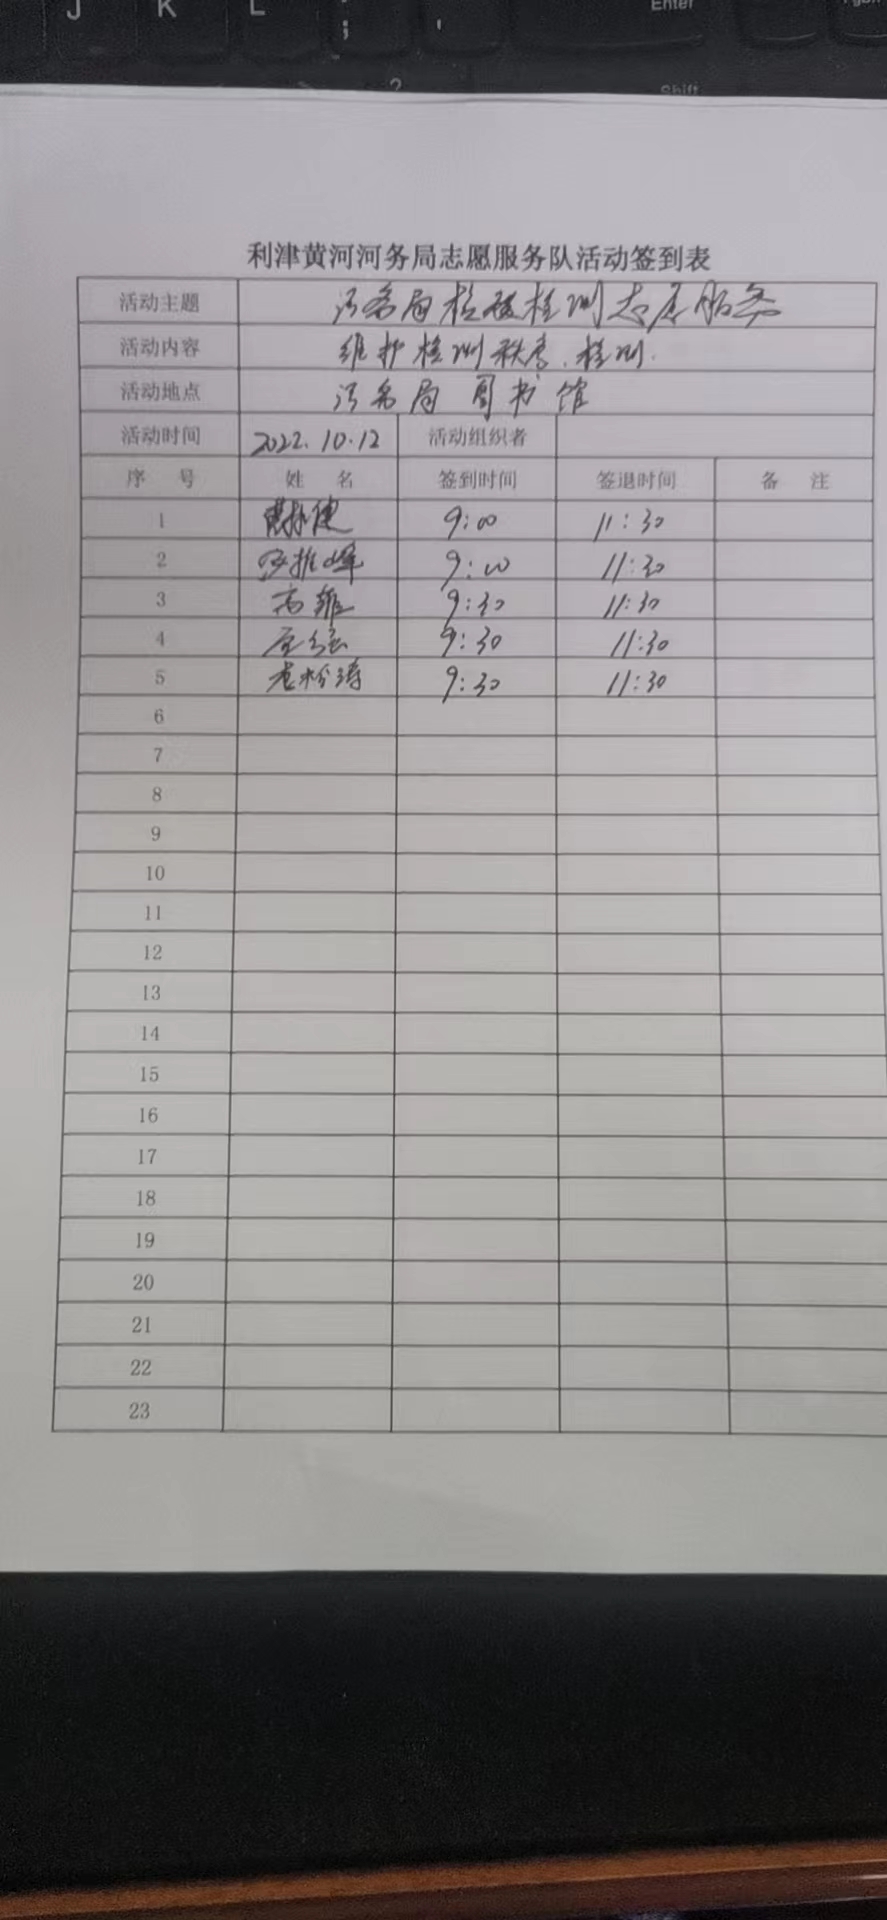 J K L ; ' Enter
? Shift
利津黄河河务局志愿服务队活动签到表
活动主题 河务局核酸检测志愿服务
活动内容 维护检测秩序、检测.
活动地点 河务局图书馆
活动时间 2022.10.12 活动组织者
序 号 姓 名 签到时间 签退时间 备 注
1 9:00 11:30
2 9:00 11:30
3 高雅 9:30 11:30
4 9:30 11:30
5 9:30 11:30
6
7
8
9
10
11
12
13
14
15
16
17
18
19
20
21
22
23